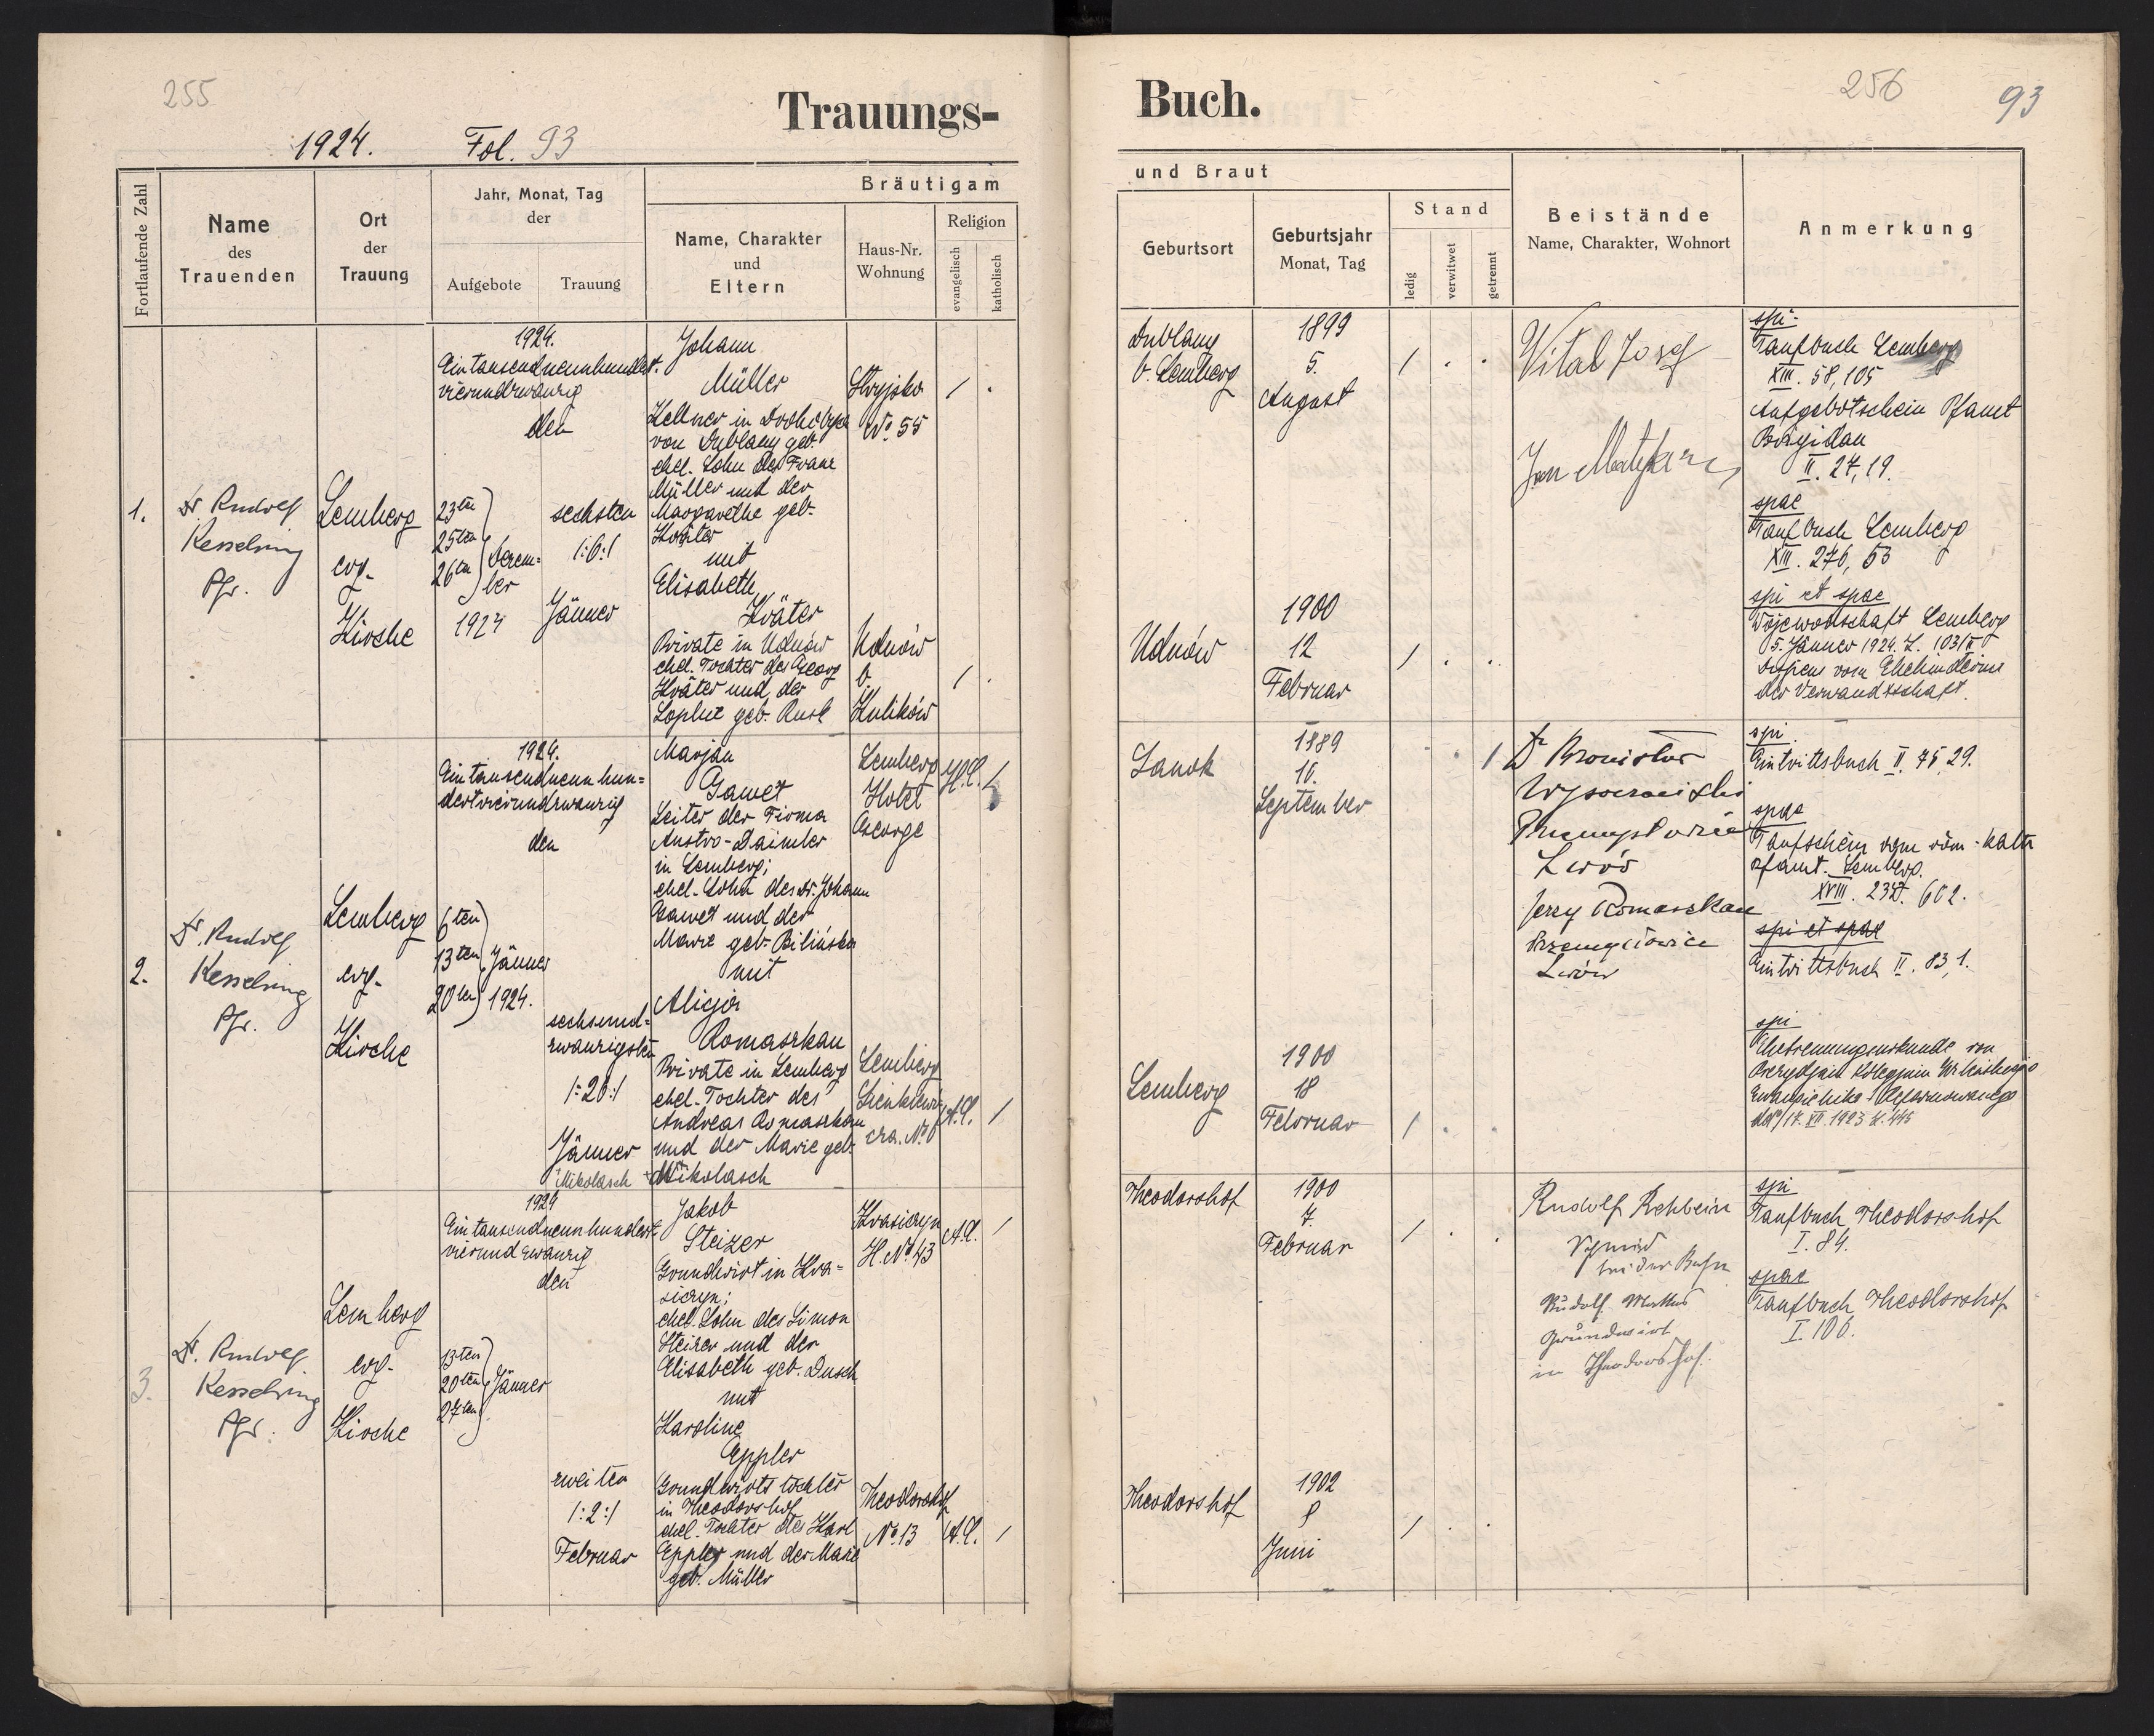 255
Trauungs-
1924. Fol. 93
Fortlaufende Zahl
Name
des
Trauenden
Ort
der
Trauung
Jahr, Monat, Tag
der
Aufgebote
Trauung
Bräutigam
Name, Charakter
und
Eltern
Haus-Nr.
Wohnung
Religion
evangelisch
katholisch
1.
Dr. Rudolf
Kesselring
Pfr.
Lemberg
evg.
Kirche
1924.
Eintausendneunhundert
vierundzwanzig
den
23ten
25ten
26ten
Dezem-
ber
1924
sechsten
/:6:/
Jänner
Johann
Müller
Kellner in
von Dublany geb.
ehel. Sohn des Franz
Müller und der
Margarethe geb.
Kräter
mit
Elisabeth
Kräter
Private in Udnów
ehel. Tochter des Georg
Kräter und der
Sophie geb.
Stryjska
No. 55
/ .
Udnów
b.
Kulików
/ .
2.
Dr. Rudolf
Kesselring
Pfr.
Lemberg
evg.
Kirche
1924.
Eintausendneunhun=
dertvierundzwanzig
den
6ten
13ten
20ten
Jänner
1924.
sechsund=
zwanzigsten
/:26:/
Jänner
Mikolasch
Marjan
Gaweł
Leiter der Firma
Austro-Daimler
in Lemberg;
ehel. Sohn des Dr. Johann
Gaweł und der
Marie geb. Bilińska
mit
Alicja
Romaszkan
Private in Lemberg
ehel. Tochter des
Andreas Romaszkan
und der Marie geb.
Mikolasch
Lemberg
Hotel
George
H.C.
Lemberg
Sienkiewi-
cza. No 6
A.C. /
3.
Dr. Rudolf
Kesselring
Pfr.
Lemberg
evg.
Kirche
1924
Eintausendneunhundert
vierundzwanzig
den
13ten
20ten
27ten
Jänner
zweiten
/:2:/
Februar
Jakob
Steizer
Grundwirt in Kra=
siczyn;
ehel. Sohn des Simon
Steizer und der
Elisabeth geb. Dusch
mit
Karoline
Eppler
Grundwirtstochter
in Theodorshof
ehel. Tochter des Karl
Eppler und der Marie
geb. Müller
Krasiczyn
H. No. 43
A.C. /
Theodorshof
No. 13
A.C. /
Buch.
256
93
und Braut
Geburtsort
Geburtsjahr
Monat, Tag
Stand
ledig
verwitwet
getrennt
Beistände
Name, Charakter, Wohnort
Anmerkung
Dublany
b. Lemberg
1899
5.
August
/ . .
Vital Josef
Jan
spi.
Taufbuch Lemberg
XIII. 58, 105
Aufgebotschein Pfamt
Brigidau
II. 27, 19.
spae
Taufbuch Lemberg
XIII. 276, 53
spi et spae
Wojewodschaft Lemberg
5. Jänner 1924. Z. 103/II
Dispens vom Ehehindernis
der Verwandtschaft.
Udnów
1900
12
Februar
/ . .
Sanok
1889
16.
September
. . /
Dr Bronisław
Wysoczański
Lwów
Jerzy Romaszkan
Przemysłowiec
Lwów
spi.
Eintrittsbuch II. 75, 29.
spae
Taufschein vom röm.-kath
Pfamt. Lemberg.
XVIII. 237. 602.
spi et spae
Eintrittsbuch II. 83, 1.
spi
Ehetrennungsurkunde von
Prezydjum Kolegjum Wileńskiego
Ewangielicko-Reformowanego
17. XII. 1923
Lemberg
1900
18
Februar
/ . .
Theodorshof
1900
7.
Februar
/ . .
Rudolf Rehbein
Schmied
bei der Bahn
Rudolf
Grundwirt
in Theodorshof.
spi
Taufbuch Theodorshof
I. 84.
spae
Taufbuch Theodorshof
I. 106.
Theodorshof
1902
8
Juni
/ . .